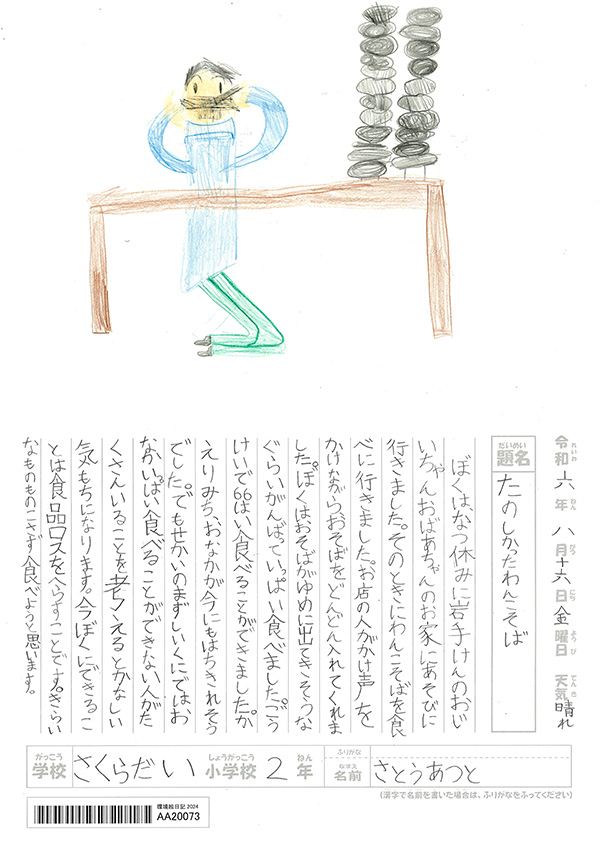 令和六年八月十六日金曜日 天気晴れ
れいわ ねん がつ にち ようび てんき
だいめい
題名 たのしかったわんこそば
ぼくはなつ休みに岩手けんのおじ
いちゃんおばあちゃんのお家にあそびに
行きました。そのときにわんこそばを食
べに行きました。お店の人がかけ声を
かけながらおそばをどんどん入れてくれま
した。ぼくはおそばがゆめに出てきそうな
ぐらいがんばっていっぱい食べました。ごう
けいで66はい食べることができました。か
えりみち、おなかが今にもはちきれそう
でした。でもせかいのまずしいくにではお
なかいっぱい食べることができない人がた
くさんいることを考えるとかなしい
気もちになります。今ぼくにできるこ
とは食品ロスをへらすことです。きらい
なものものこさず食べようと思います。
がっこう しょうがっこう ねん ふりがな なまえ
学校 さくらだい 小学校 2年 名前 さとうあつと
(漢字で名前を書いた場合は、ふりがなをふってください)
環境絵日記 2024
AA20073